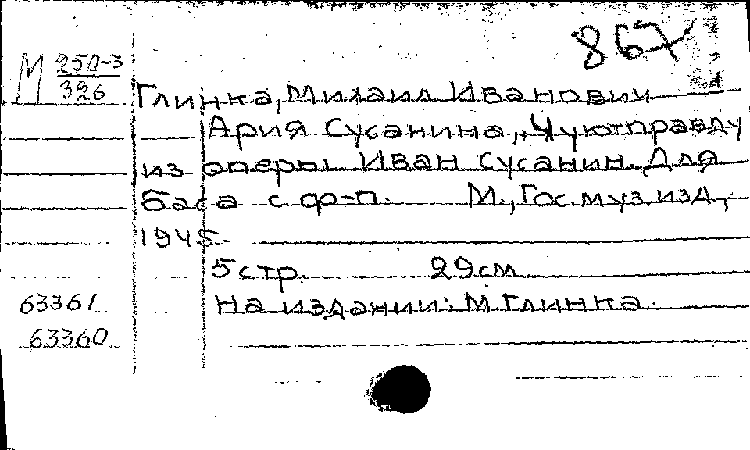 867
М 250-3
326
Глинка, Михаил Иванович
Ария Сусанина „Чуют правду
из оперы Иван Сусанин. Для
баса с ф-п. М., Гос. муз. изд,
1945
5 стр. 29 см
На издании: М Глинка.
63361
63360